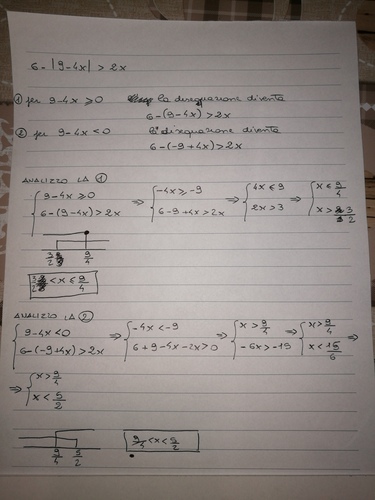 6 - |9-4x| > 2x
① per 9-4x ⩾ 0 la disequazione diventa
6-(9-4x) > 2x
② per 9-4x < 0 la disequazione diventa
6-(-9+4x) > 2x
ANALIZZO LA ①
{ 9-4x ⩾ 0 ⇒ { -4x ⩾ -9 ⇒ { 4x ⩽ 9 ⇒ { x ⩽ 9/4
6-(9-4x) > 2x 6-9+4x > 2x 2x > 3 x > 3/2
3/2 9/4
3/2 < x ⩽ 9/4
ANALIZZO LA ②
{ 9-4x < 0 ⇒ { -4x < -9 ⇒ { x > 9/4 ⇒ { x > 9/4 ⇒
6-(-9+4x) > 2x 6+9-4x-2x > 0 -6x > -15 x < 15/6
⇒ { x > 9/4
x < 5/2
9/4 5/2
9/4 < x < 5/2